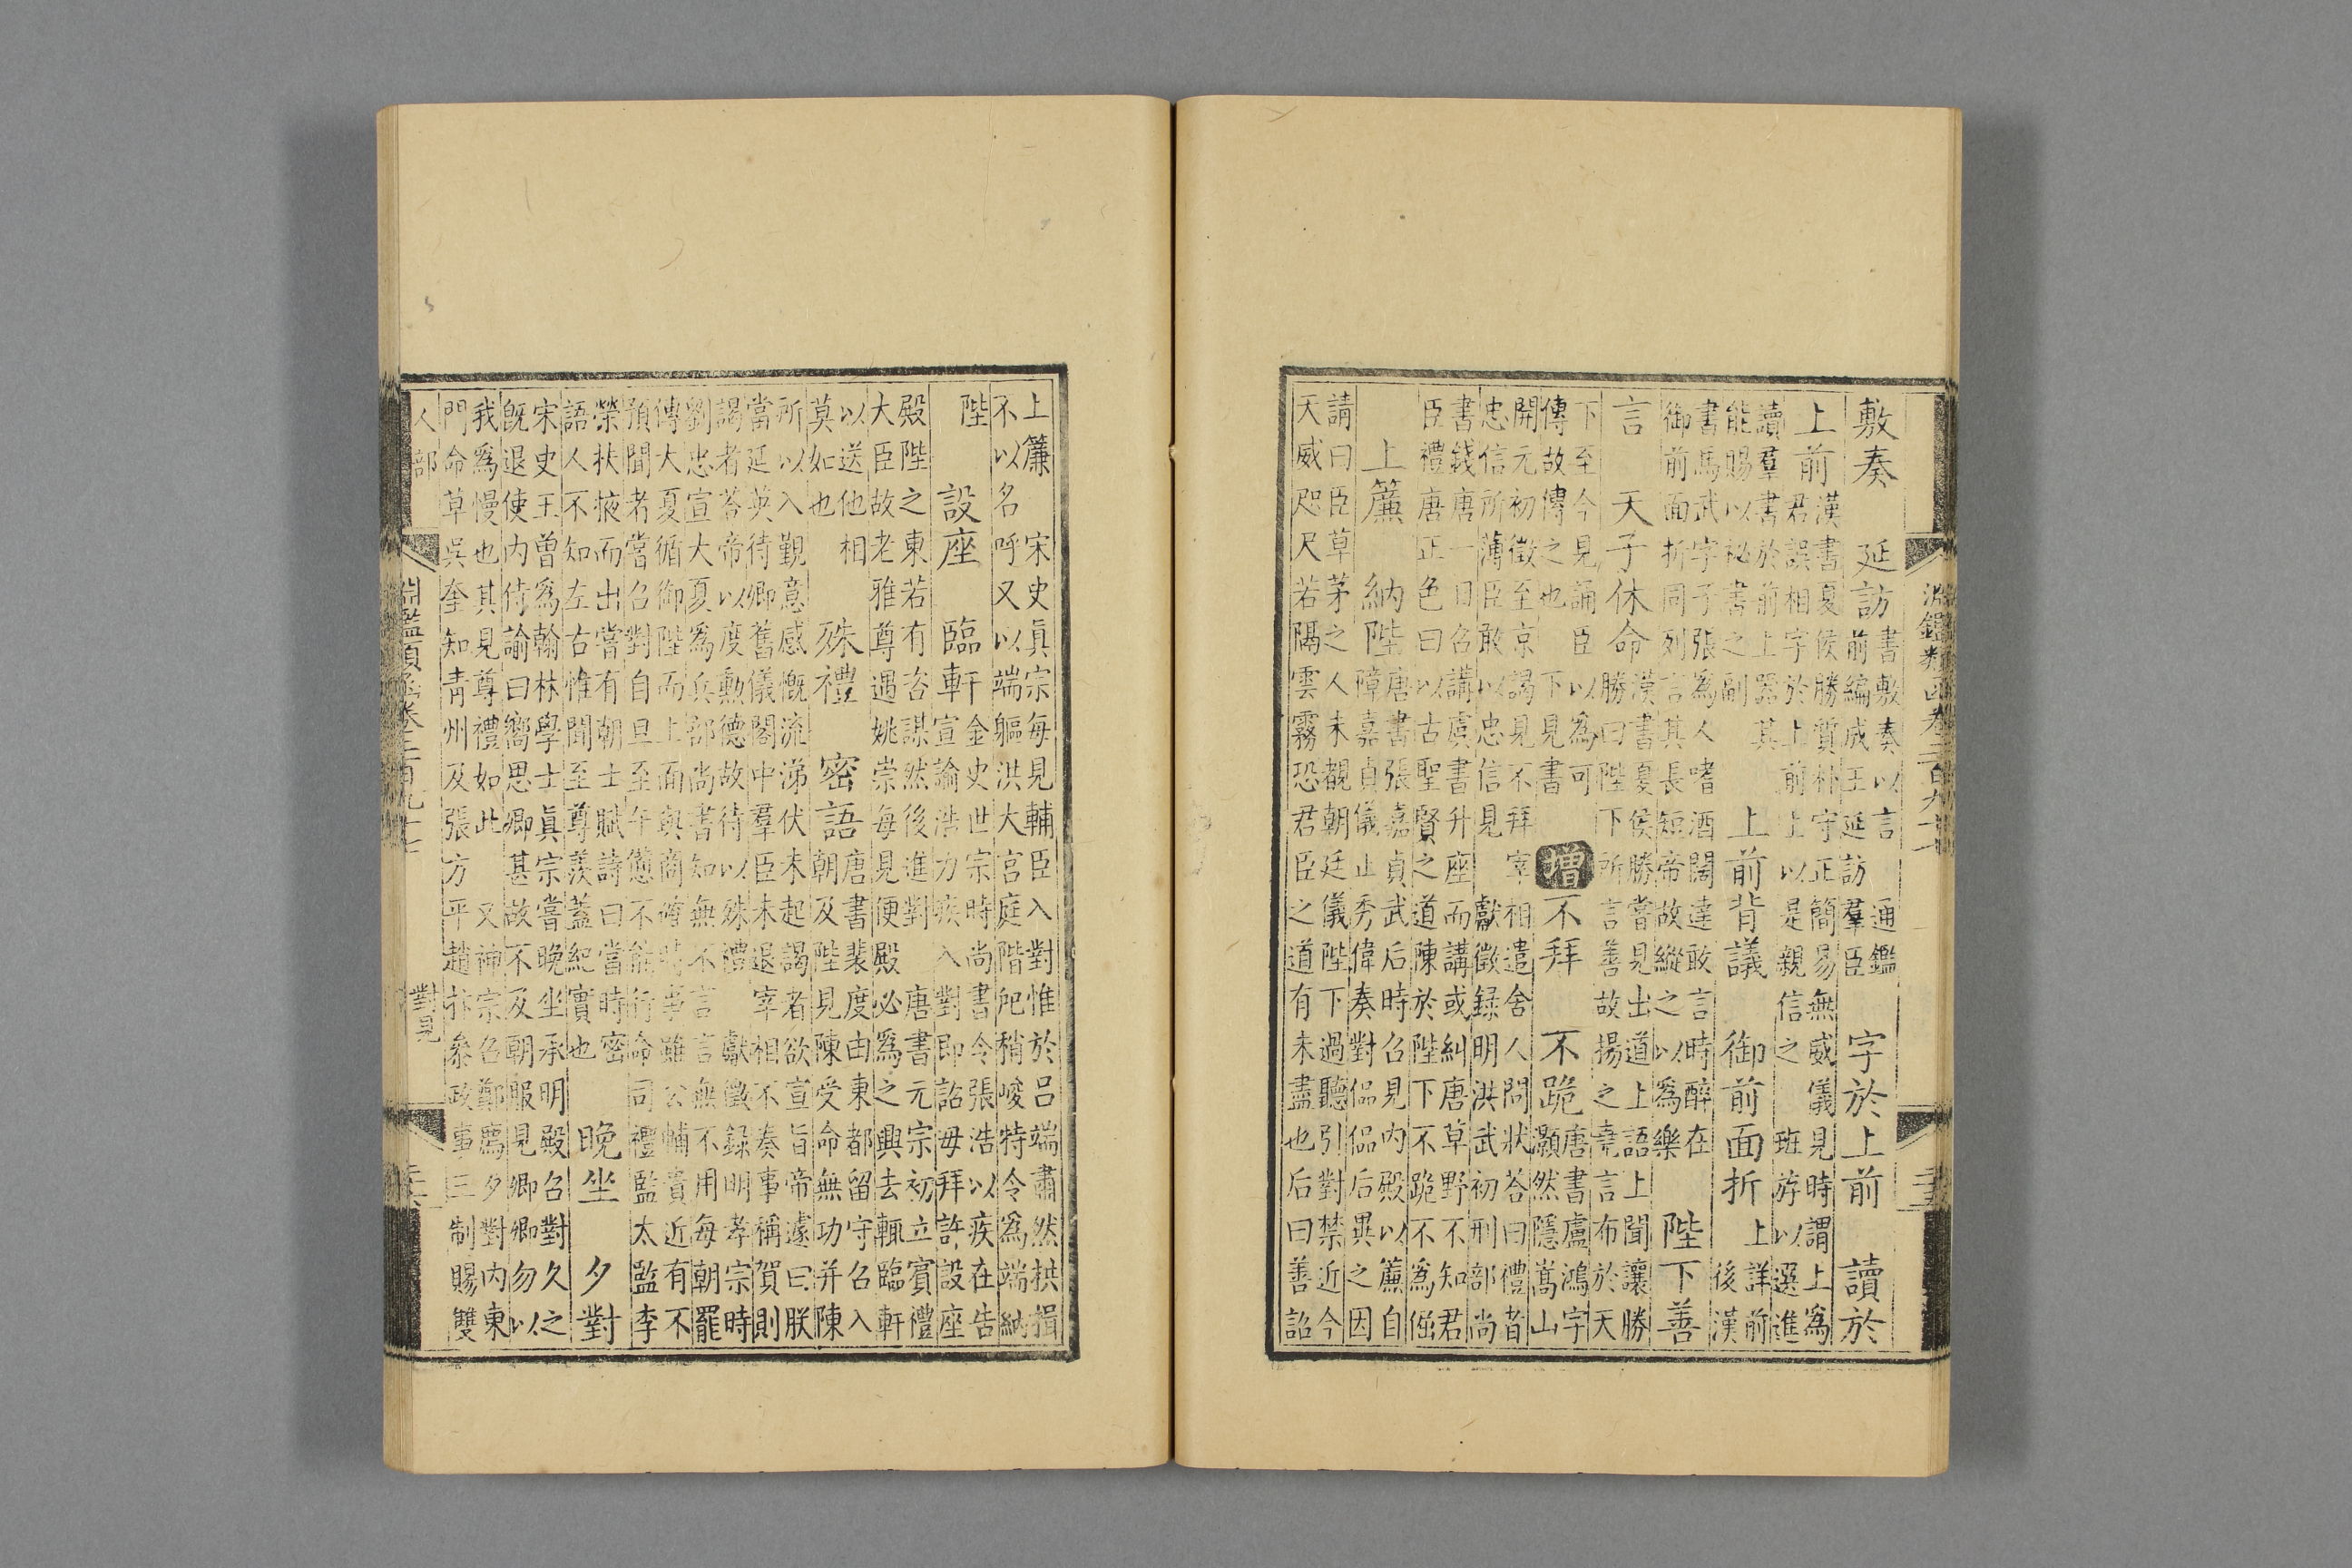 淵鑑類函卷二百九十七
敷奏 延訪 書敷奏以言 通鑑
前編成王延訪羣臣 字於上前 讀於
上前 漢書夏侯勝質朴守正簡易無威儀見時謂上爲
君誤相字於上前上以是親信之 班斿以選進
讀羣書於前上器其
能賜以祕書之副 上前背議 御前面折 上詳前
後漢
書馬武字子張爲人嗜酒闊達敢言時醉在
御前面折同列言其長短帝故縱之以爲樂 陛下善
言 天子休命 漢書夏侯勝嘗見出道上語上聞讓勝
勝曰陛下所言善故揚之堯言布於天
下至今見誦臣以爲可
傳故傳之也 下見書 增 不拜 不跪 唐書盧鴻字
灝然隱嵩山
開元初徵至京謁見不拜宰相遣舍人問狀荅曰禮者
忠信所薄臣敢以忠信見 獻徵録明洪武初刑部尚
書錢唐一日召講虞書升座而講或糾唐草野不知君
臣禮唐正色曰以古聖賢之道陳於陛下不跪不爲倨
上簾 納陛 唐書張嘉貞武后時召見内殿以簾自
障嘉貞儀止秀偉奏對偘偘后異之因
請曰臣草茅之人未覩朝廷儀陛下過聽引對禁近今
天威咫尺若隔雲霧恐君臣之道有未盡也后曰善詔
上簾 宋史眞宗每見輔臣入對惟於吕端肅然拱揖
不以名呼又以端軀洪大宮庭階戺稍峻特令爲端納
陛 設座 臨軒 金史世宗時尚書令張浩以疾在告
宣諭浩力疾入對即詔毋拜許設座
殿陛之東若有咨謀然後進對 唐書元宗初立賓禮
大臣故老雅尊遇姚崇每見便殿必爲之興去輒臨軒
以送他相
莫如也 殊禮 密語 唐書裴度由東都留守召入
朝及陛見陳受命無功并陳
所以入覲意感慨流涕伏未起謁者欲宣旨帝遽曰朕
當延英待卿舊儀閣中羣臣未退宰相不奏事稱賀則
謁者荅帝以度勳德故待以殊禮 獻徵録明孝宗時
劉忠宣大夏爲兵部尚書知無不言言無不用每朝罷
傳大夏循御陛而上面與商確時事雖公輔貴近有不
預聞者嘗召對自旦至午憊不能行命司禮監太監李
榮扶掖而出嘗有朝士賦詩曰當時密
語人不知左右惟聞至尊羨蓋紀實也 晚坐 夕對
宋史王曾爲翰林學士眞宗嘗晚坐承明殿召對久之
既退使内侍諭曰嚮思卿甚故不及朝服見卿卿勿以
我爲慢也其見尊禮如此 又神宗召鄭廌夕對内東
門命草吳奎知青州及張方平趙抃叅政事三制賜雙
人部 淵鑑類函卷二百九十七 對見